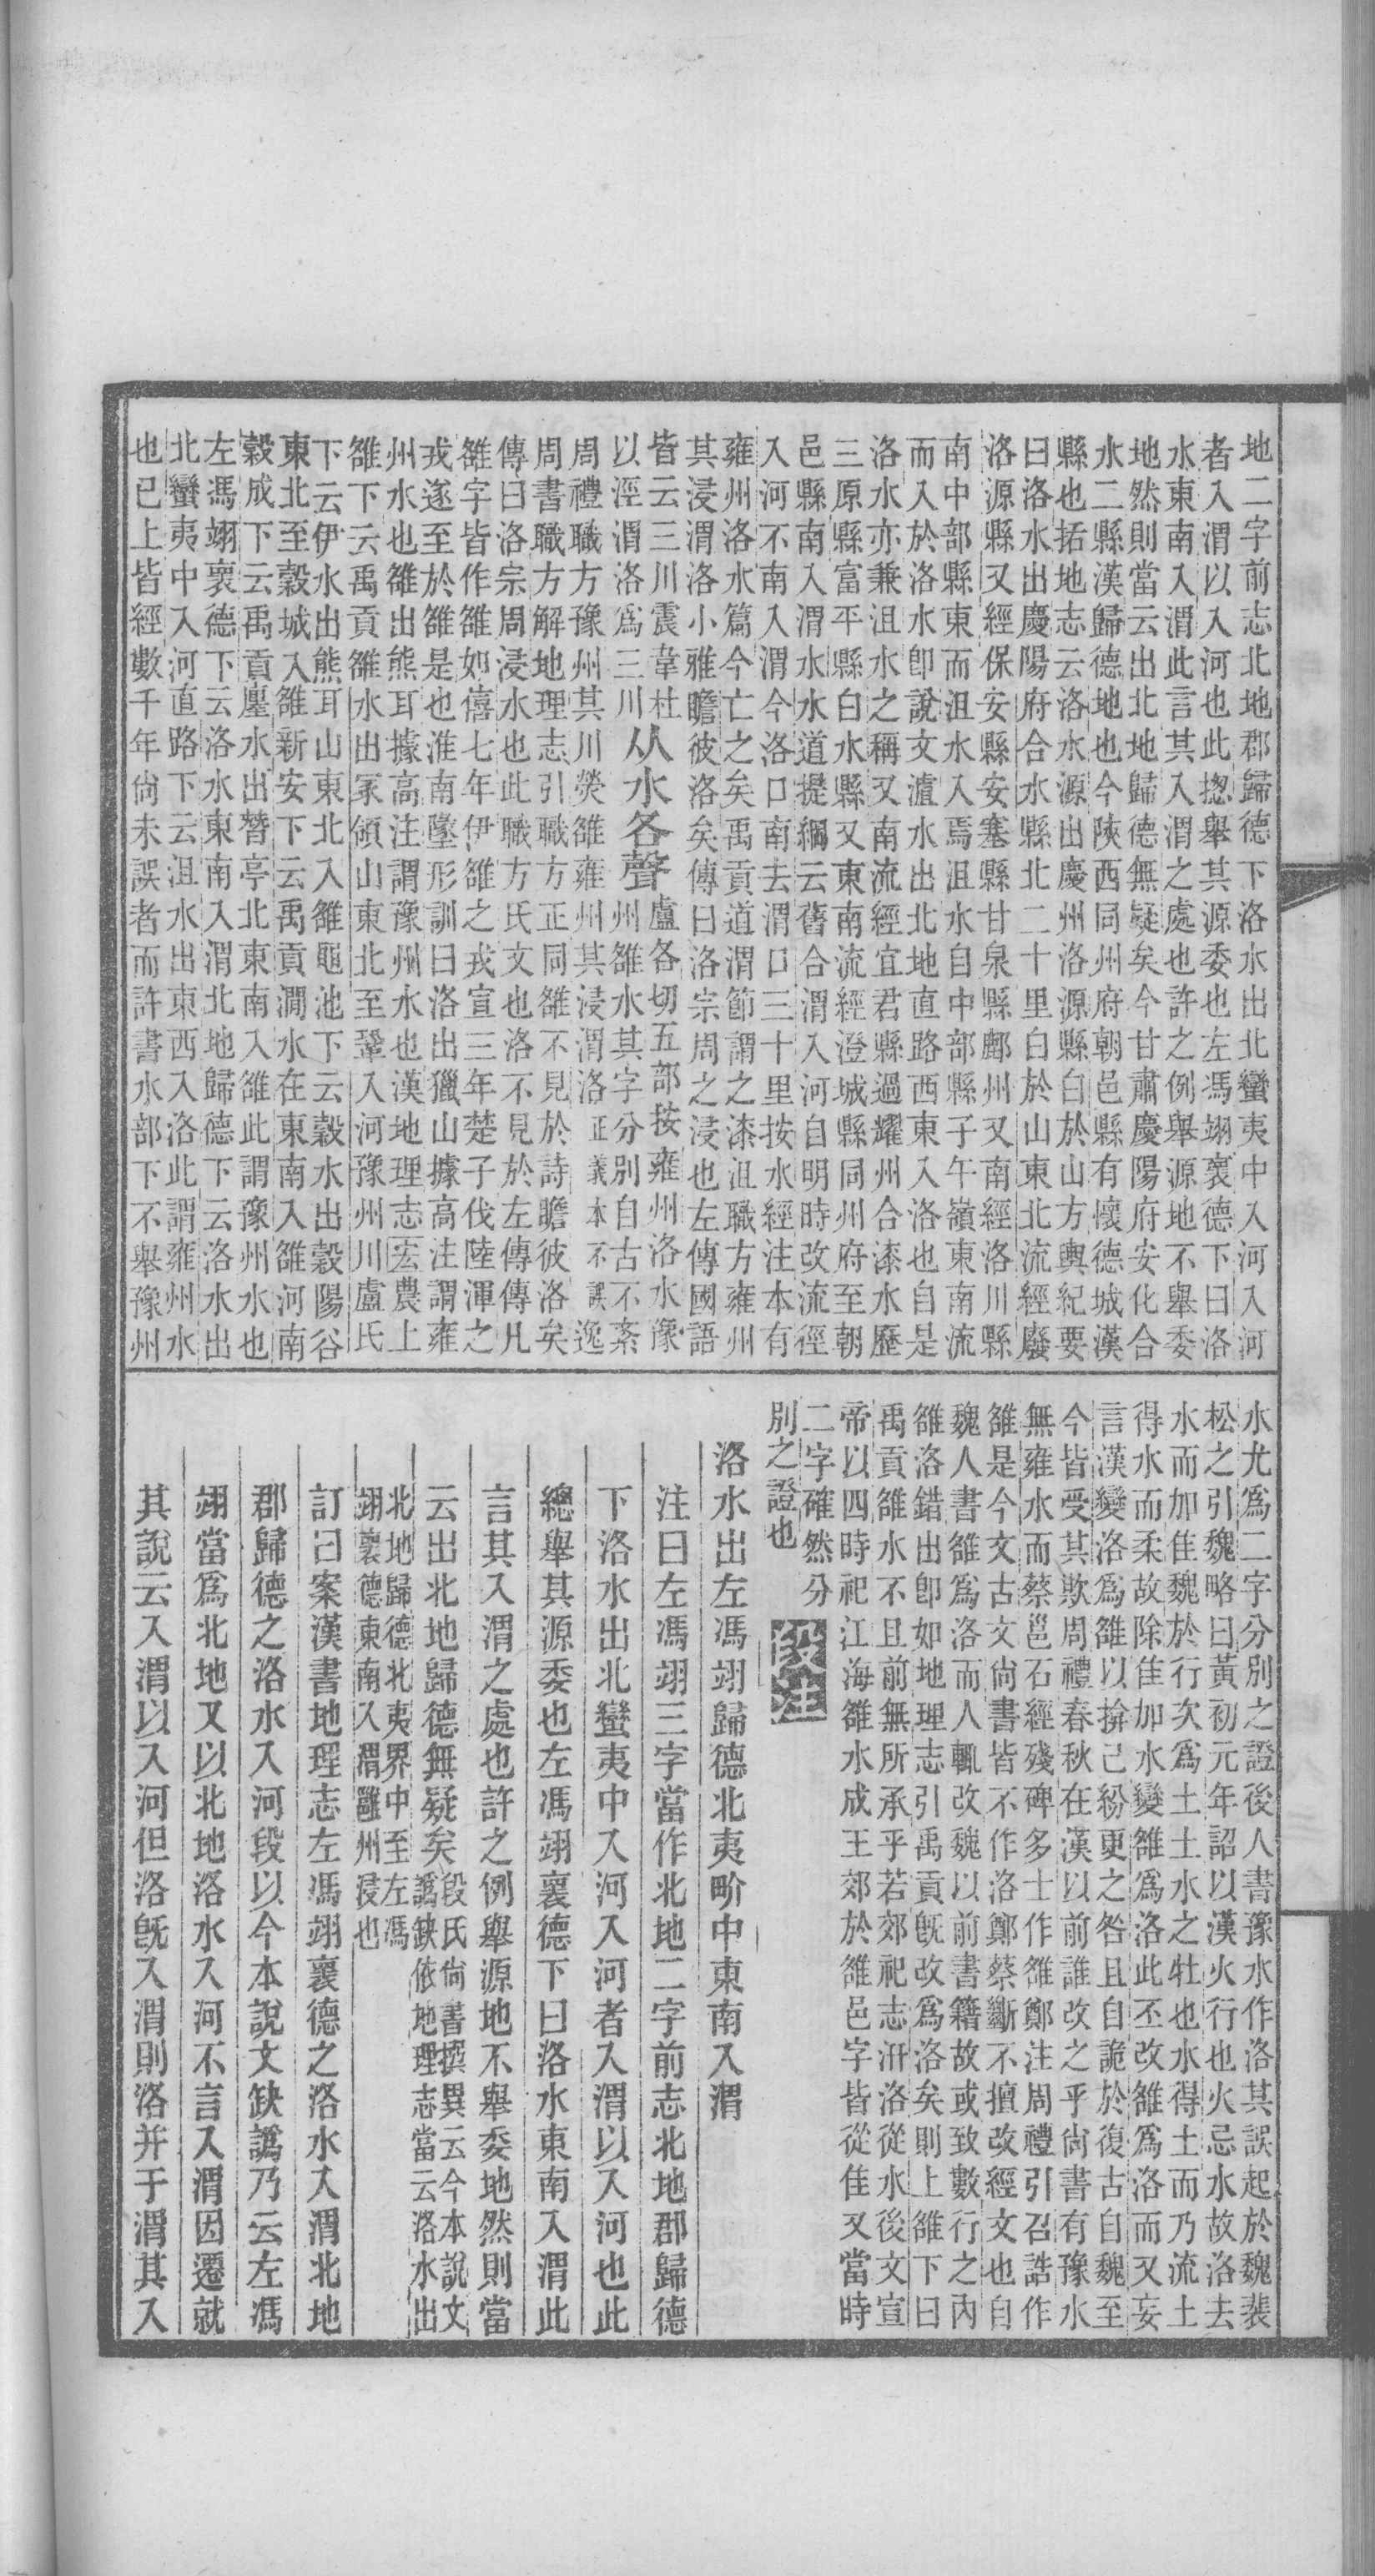 地二字前志北地郡歸德下洛水出北蠻夷中入河入河
者入渭以入河也此揔舉其源委也左馮翊褱德下曰洛
水東南入渭此言其入渭之處也許之例舉源地不舉委
地然則當云出北地歸德無疑矣今甘肅慶陽府安化合
水二縣漢歸德地也今陝西同州府朝邑縣有懷德城漢
縣也括地志云洛水源出慶州洛源縣白於山方輿紀要
曰洛水出慶陽府合水縣北二十里白於山東北流經廢
洛源縣又經保安縣安塞縣甘泉縣鄜州又南經洛川縣
南中部縣東而沮水入焉沮水自中部縣子午嶺東南流
而入於洛水卽說文瀘水出北地直路西東入洛也自是
洛水亦兼沮水之稱又南流經宜君縣過耀州合漆水歷
三原縣富平縣白水縣又東南流經澄城縣同州府至朝
邑縣南入渭水水道提綱云舊合渭入河自明時改流徑
入河不南入渭今洛口南去渭口三十里按水經注本有
雍州洛水篇今亡之矣禹貢道渭節謂之漆沮職方雍州
其浸渭洛小雅瞻彼洛矣傳曰洛宗周之浸也左傳國語
皆云三川震韋杜从水各聲盧各切五部按雍州洛水豫
以涇渭洛爲三川州雒水其字分別自古不紊
周禮職方豫州其川熒雒雍州其浸渭洛正義本不誤逸
周書職方解地理志引職方正同雒不見於詩瞻彼洛矣
傳曰洛宗周浸水也此職方氏文也洛不見於左傳傳凡
雒字皆作雒如僖七年伊雒之戎宣三年楚子伐陸渾之
戎遂至於雒是也淮南墬形訓曰洛出獵山據高注謂雍
州水也雒出熊耳據高注謂豫州水也漢地理志宏農上
雒下云禹貢雒水出冢領山東北至鞏入河豫州川盧氏
下云伊水出熊耳山東北入雒黽池下云穀水出穀陽谷
東北至穀城入雒新安下云禹貢澗水在東南入雒河南
穀成下云禹貢廛水出朁亭北東南入雒此謂豫州水也
左馮翊褱德下云洛水東南入渭北地歸德下云洛水出
北蠻夷中入河直路下云沮水出東西入洛此謂雍州水
也已上皆經數千年尙未誤者而許書水部下不舉豫州
水尤爲二字分別之證後人書豫水作洛其誤起於魏裴
松之引魏略曰黃初元年詔以漢火行也火忌水故洛去
水而加隹魏於行次爲土土水之牡也水得土而乃流土
得水而柔故除隹加水變雒爲洛此丕改雒爲洛而又妄
言漢變洛爲雒以揜己紛更之咎且自詭於復古自魏至
今皆受其欺周禮春秋在漢以前誰改之乎尙書有豫水
無雍水而蔡邕石經殘碑多士作雒鄭注周禮引召誥作
雒是今文古文尙書皆不作洛鄭蔡斷不擅改經文也自
魏人書雒爲洛而人輒改魏以前書籍故或致數行之內
雒洛錯出卽如地理志引禹貢旣改爲洛矣則上雒下曰
禹貢雒水不且前無所承乎若郊祀志汧洛從水後文宣
帝以四時祀江海雒水成王郊於雒邑字皆從隹又當時
二字確然分
別之證也 段注
洛水出左馮翊歸德北夷畍中東南入渭
注曰左馮翊三字當作北地二字前志北地郡歸德
下洛水出北蠻夷中入河入河者入渭以入河也此
總舉其源委也左馮翊襄德下曰洛水東南入渭此
言其入渭之處也許之例舉源地不舉委地然則當
云出北地歸德無疑矣段氏尙書撰異云今本說文譌缺依地理志當云洛水出
北地歸德北夷界中至左馮翊襄德東南入渭雝州浸也
訂曰案漢書地理志左馮翊襄德之洛水入渭北地
郡歸德之洛水入河段以今本說文缺譌乃云左馮
翊當爲北地又以北地洛水入河不言入渭因遷就
其說云入渭以入河但洛旣入渭則洛并于渭其入